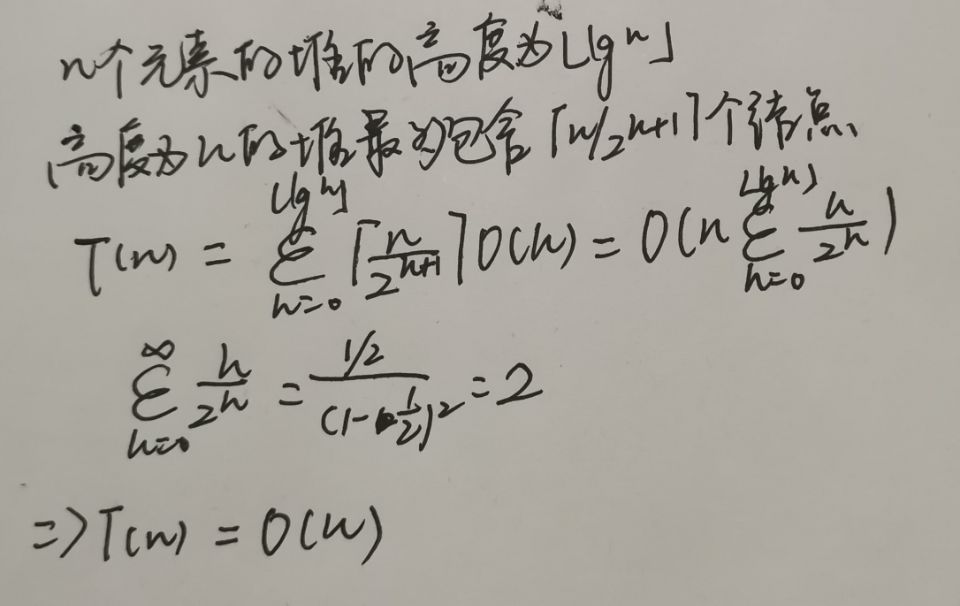 n个元素的堆的高度为⌊lg n⌋
高度为h的堆最多包含⌈n/2^{h+1}⌉个结点
T(n) = \sum_{h=0}^{⌊lg n⌋} ⌈\frac{n}{2^{h+1}}⌉ O(h) = O(n \sum_{h=0}^{⌊lg n⌋} \frac{h}{2^h})
\sum_{h=0}^{∞} \frac{h}{2^h} = \frac{1/2}{(1-\frac{1}{2})^2} = 2
=> T(n) = O(n)